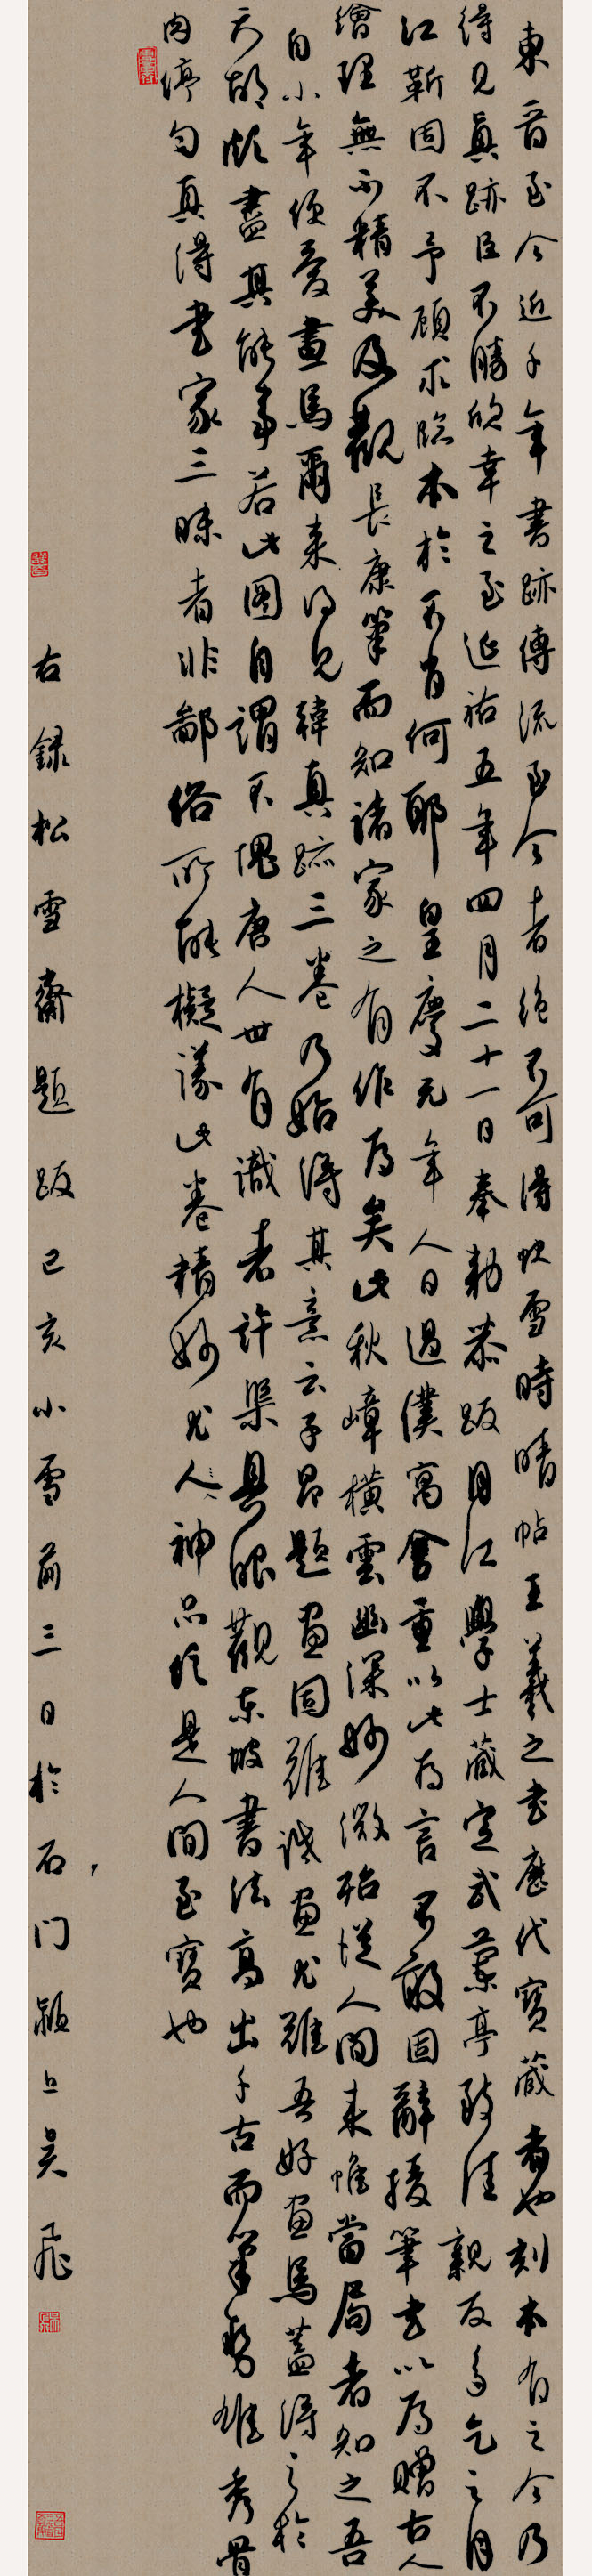 東晉至今近千年書跡傳流至今者絶不可得快雪時晴帖王羲之書歷代寶藏者也刻本有之今乃
得見真跡臣不勝欣幸之至延祐五年四月二十一日奉勅恭跋月江學士藏定武蘭亭致佳親友多乞之月
江靳固不予顧求臨本於不肖何耶皇慶元年人日過僕寓舍重以此為言不敢固辭援筆書以為贈古人
繪理無不精美及觀長康筆而知諸家之有作為矣此秋嶂橫雲幽深妙微殆從人間來惟當局者知之吾
自小年便愛畫馬爾來得見韓真跡三卷乃始得其意云子昂題畫固難識畫尤難吾好畫馬蓋得之於
天故頗盡其能事若此圖自謂不愧唐人世有識者許渠具眼觀東坡書法高出千古而筆勢雄秀骨
肉停勻真得書家三昧者非鄙俗所能擬議此卷精妙尤人神品作是人間至寶也
右錄松雪齋題跋己亥小雪前三日於石門潁上吳飛